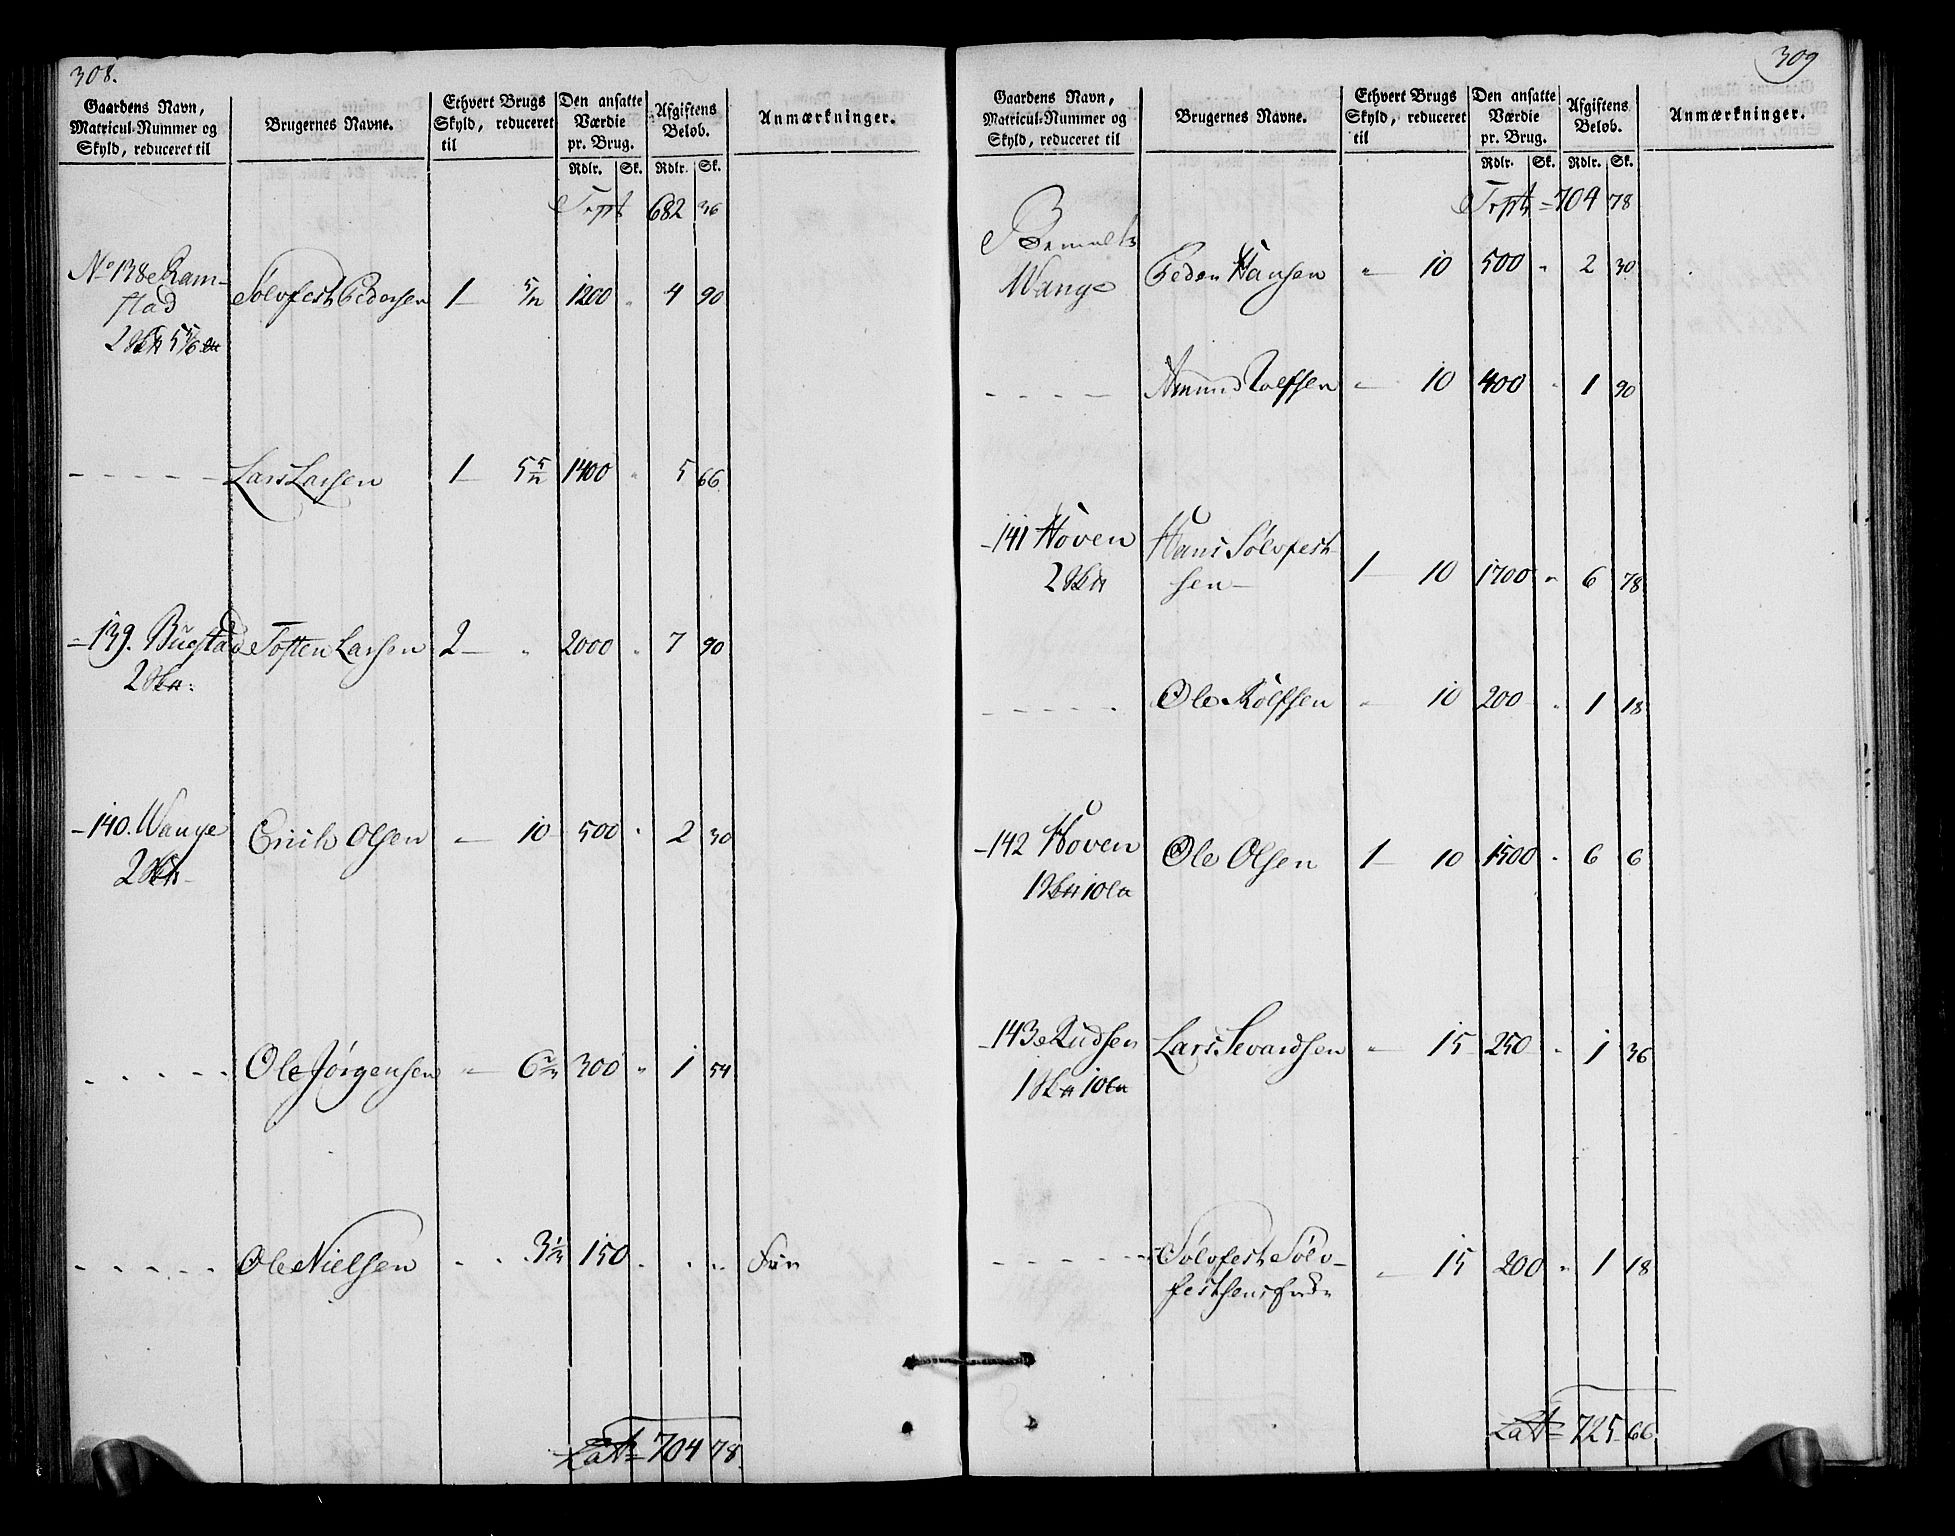 308.
Gaardens Navn, Matricul-Nummer og Skyld, reduceret til | Brugernes Navne. | Ethvert Brugs Skyld, reduceret til | Den ansatte Værdie pr. Brug. | Afgiftens Beløb. | Anmærkninger.
Rdlr. Sk. Rdlr. Sk.
Trpt 682 36
No 138 Ram-
stad Sølvfest Pedersen 1 – 5/12 1200 " 4 90
2 Skp 5 5/6
- - - - - Lars Larsen 1 – 5 5/12 1400 " 5 66
- 139. Bugstad Tosten Larsen 2 – " 2000 " 7 90
2
- 140. Wange Erich Olsen – 10 500 " 2 30
2
- - - - - Ole Jørgensen – 6 2/3 300 " 1 54
- - - - - Ole Nielsen " " 3 1/3 150 " " " Frie
Lat 704 78
309
Gaardens Navn, Matricul-Nummer og Skyld, reduceret til | Brugernes Navne. | Ethvert Brugs Skyld, reduceret til | Den ansatte Værdie pr. Brug. | Afgiftens Beløb. | Anmærkninger.
Rdlr. Sk. Rdlr. Sk.
Trpt = 704 78
Bemelte
Wange Peder Hansen " 10 500 " 2 30
- - - - - Amund Rolfsen – 10 400 " 1 90
- 141 Hoven Hans Sølvfest-
2 sen – 1 – 10 1700 " 6 78
- - - - - Ole Rolfsen " 10 200 " 1 18
- 142 Hoven Ole Olsen 1 – 10 1500 " 6 6
1 10
- 143 Rudsen Lars Sevardsen " 15 250 " 1 36
1 10
- - - - - Sølvfest Sølv-
festsens – 15 200 " 1 18
Lat = 725 66